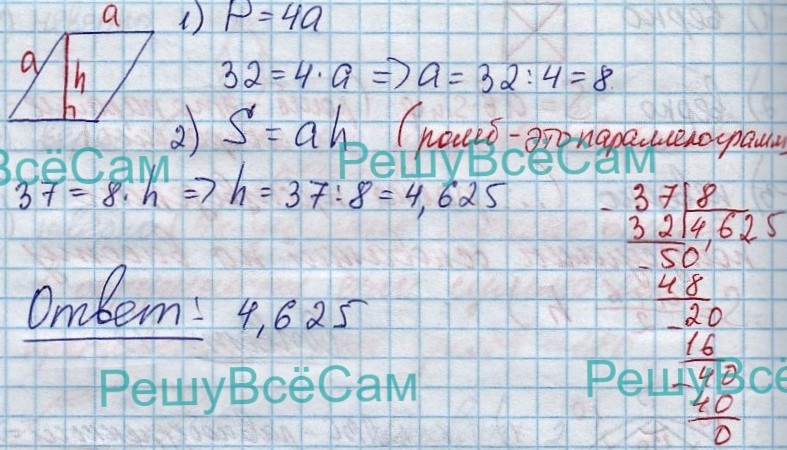 a
a
h
1) P = 4a
32 = 4 · a => a = 32 : 4 = 8
2) S = ah (ромб - это параллелограмм
37 = 8 · h => h = 37 : 8 = 4,625
- 37 8
32 4,625
- 50
48
- 20
16
- 40
40
0
Ответ: 4,625
ВсёСам
РешуВсёСам
РешуВсёСам
РешуВсё